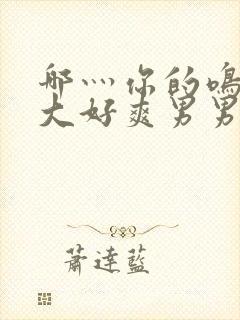 哪灬你的鳴
大好爽男男
蕭達藍